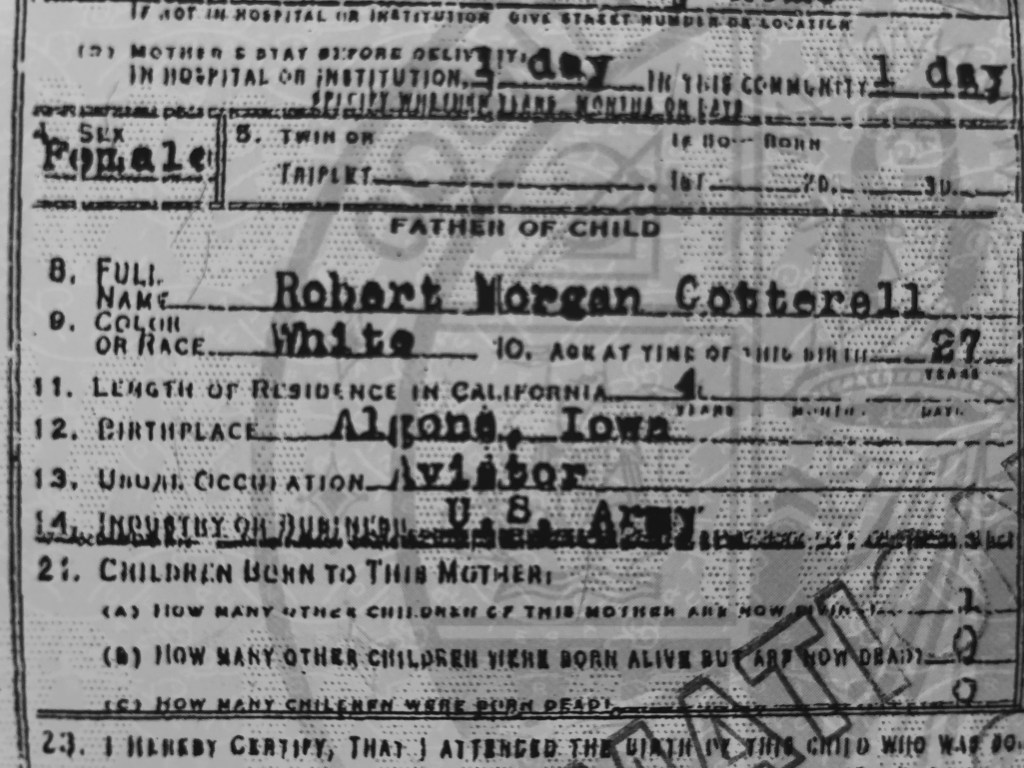 IF NOT IN HOSPITAL OR INSTITUTION GIVE STREET NUMBER OR LOCATION
(D) MOTHER'S STAY BEFORE DELIVERY:
IN HOSPITAL OR INSTITUTION 1 day IN THIS COMMUNITY 1 day
SPECIFY WHETHER YEARS, MONTHS OR DAYS
4. SEX 5. TWIN OR IF SO-- BORN
Female
TRIPLET 1ST 2D. 3D.
FATHER OF CHILD
8. FULL
NAME Robert Morgan Cotterell
9. COLOR
OR RACE White 10. AGE AT TIME OF THIS BIRTH 27
YEARS
11. LENGTH OF RESIDENCE IN CALIFORNIA 4
YEARS MONTHS DAYS
12. BIRTHPLACE Algona, Iowa
13. USUAL OCCUPATION Aviator
14. INDUSTRY OR BUSINESS U.S. Army
21. CHILDREN BORN TO THIS MOTHER:
(A) HOW MANY OTHER CHILDREN OF THIS MOTHER ARE NOW LIVING? 1
(B) HOW MANY OTHER CHILDREN WERE BORN ALIVE BUT ARE NOW DEAD? 0
(C) HOW MANY CHILDREN WERE BORN DEAD? 0
23. I HEREBY CERTIFY, THAT I ATTENDED THE BIRTH OF THIS CHILD WHO WAS